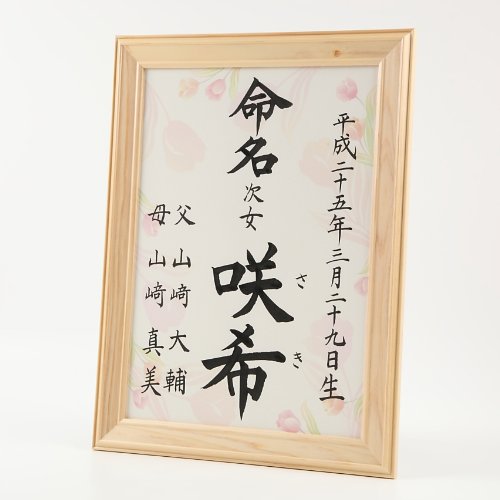 平成二十五年三月二十九日生
命名 次女
咲希
さき
父 山﨑大輔
母 山﨑真美